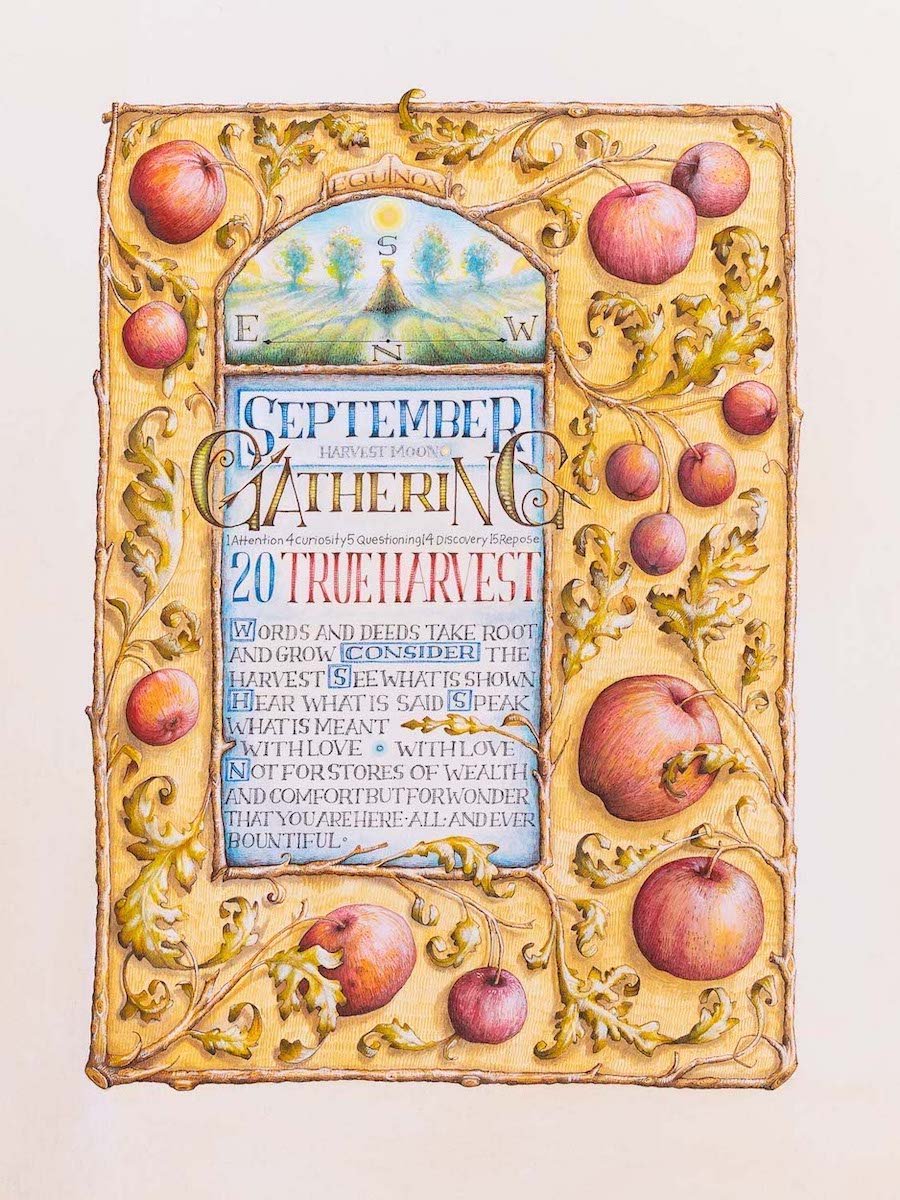 EQUINOX
S
E W
N
SEPTEMBER
HARVEST MOON
GATHERING
1 Attention 4 Curiosity 5 Questioning 14 Discovery 15 Repose
20 TRUE HARVEST
WORDS AND DEEDS TAKE ROOT
AND GROW CONSIDER THE
HARVEST SEE WHAT IS SHOWN
HEAR WHAT IS SAID SPEAK
WHAT IS MEANT
WITH LOVE • WITH LOVE
NOT FOR STORES OF WEALTH
AND COMFORT BUT FOR WONDER
THAT YOU ARE HERE·ALL·AND EVER
BOUNTIFUL•